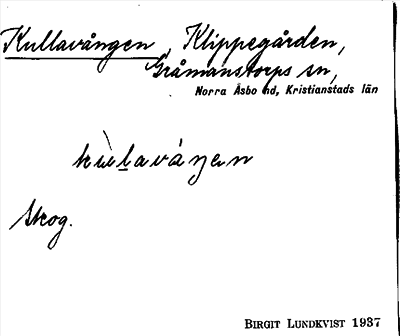 Kullavången, Klippegården,
Gråmanstorps sn,
Norra Åsbo hd, Kristianstads län
Skog.
BIRGIT LUNDKVIST 1937